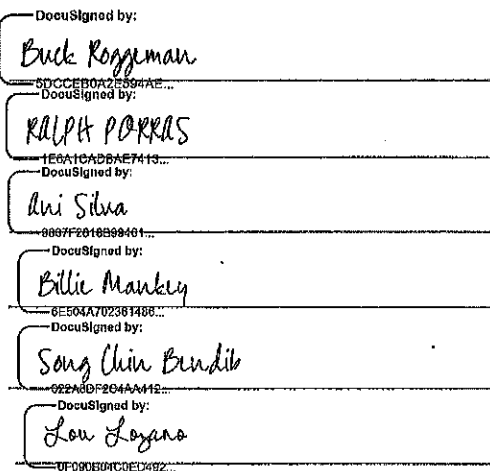 DocuSigned by:
Buck Roggeman
5DCCEB0A2E594AE...
DocuSigned by:
RALPH PORRAS
1E6A1CADBAE7413...
DocuSigned by:
Ani Silva
DocuSigned by:
Billie Mankey
6E504A702361486...
DocuSigned by:
Song Chin Bendib
DocuSigned by:
Lou Lozano